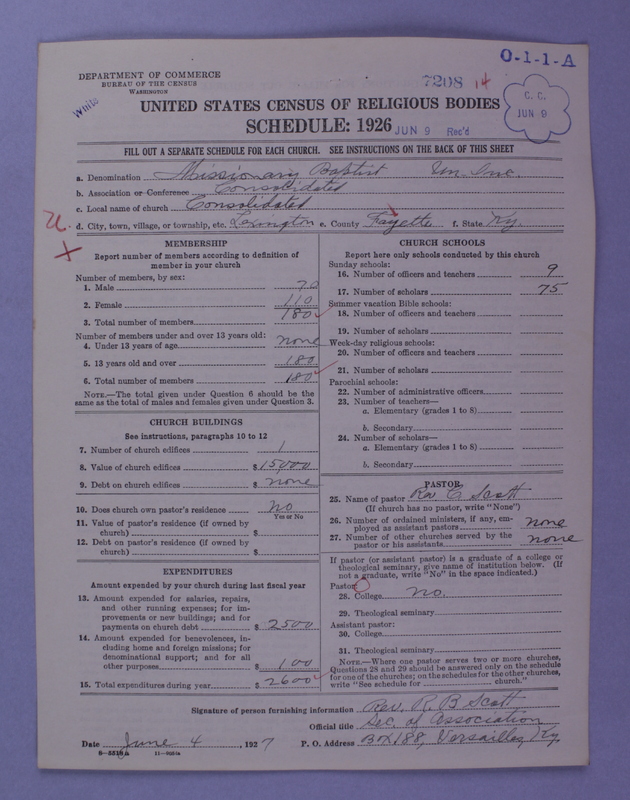 O-1-1-A
DEPARTMENT OF COMMERCE
BUREAU OF THE CENSUS
WASHINGTON
White
7208 14
C. C.
JUN 9
UNITED STATES CENSUS OF RELIGIOUS BODIES
SCHEDULE: 1926 JUN 9 Rec'd
FILL OUT A SEPARATE SCHEDULE FOR EACH CHURCH. SEE INSTRUCTIONS ON THE BACK OF THIS SHEET
a. Denomination Missionary Baptist Un. Inc.
b. Association or Conference Consolidated
c. Local name of church Consolidated
d. City, town, village, or township, etc. Lexington e. County Fayette f. State Ky.
MEMBERSHIP
Report number of members according to definition of
member in your church
Number of members, by sex:
1. Male 70
2. Female 110
3. Total number of members 180
Number of members under and over 13 years old:
4. Under 13 years of age none
5. 13 years old and over 180
6. Total number of members 180
NOTE.—The total given under Question 6 should be the
same as the total of males and females given under Question 3.
CHURCH BUILDINGS
See instructions, paragraphs 10 to 12
7. Number of church edifices 1
8. Value of church edifices $15,000
9. Debt on church edifices $ none
10. Does church own pastor's residence? no
Yes or No
11. Value of pastor's residence (if owned by
church) $
12. Debt on pastor's residence (if owned by
church) $
EXPENDITURES
Amount expended by your church during last fiscal year
13. Amount expended for salaries, repairs,
and other running expenses; for im-
provements or new buildings; and for
payments on church debt $ 2500
14. Amount expended for benevolences, in-
cluding home and foreign missions; for
denominational support; and for all
other purposes $ 100
15. Total expenditures during year $ 2600
CHURCH SCHOOLS
Report here only schools conducted by this church
Sunday schools:
16. Number of officers and teachers 9
17. Number of scholars 75
Summer vacation Bible schools:
18. Number of officers and teachers
19. Number of scholars
Week-day religious schools:
20. Number of officers and teachers
21. Number of scholars
Parochial schools:
22. Number of administrative officers
23. Number of teachers—
a. Elementary (grades 1 to 8)
b. Secondary
24. Number of scholars—
a. Elementary (grades 1 to 8)
b. Secondary
PASTOR
25. Name of pastor Rev. C. Scott
(If church has no pastor, write "None")
26. Number of ordained ministers, if any, em-
ployed as assistant pastors none
27. Number of other churches served by the
pastor or his assistants none
If pastor (or assistant pastor) is a graduate of a college or
theological seminary, give name of institution below. (If
not a graduate, write "No" in the space indicated.)
Pastor:
28. College no.
29. Theological seminary
Assistant pastor:
30. College
31. Theological seminary
NOTE.—Where one pastor serves two or more churches,
Questions 28 and 29 should be answered only on the schedule
for one of the churches; on the schedules for the other churches,
write "See schedule for church."
Signature of person furnishing information Rev. R. B Scott
Official title Sec of Association
Date June 4, 1927 P. O. Address Box 188, Versailles, Ky.